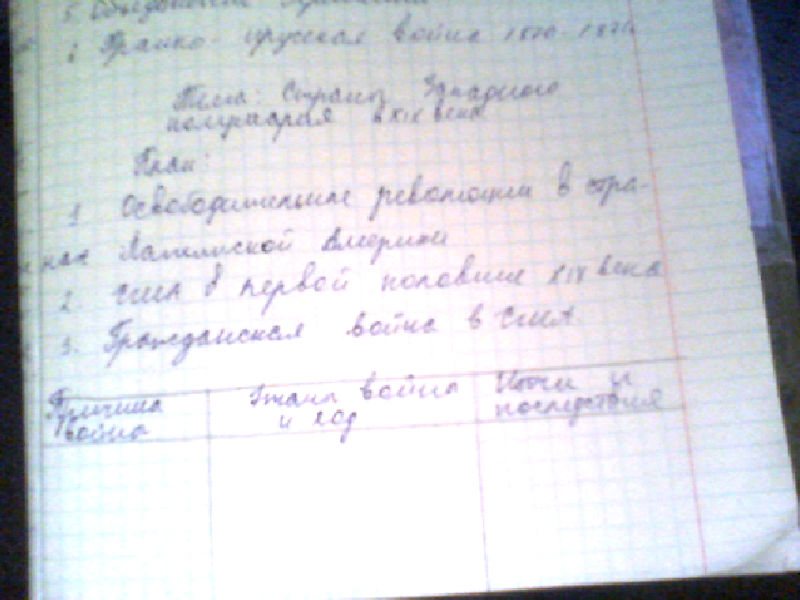 6 Франко-прусская война 1870-1871
Тема: Страны Западного
полушария в XIX веке
План:
1 Освободительные революции в стра-
нах Латинской Америки
2 США в первой половине XIX века
3. Гражданская война в США.
Причины
войны
Этапы войны
и ход
Итоги и
последствия